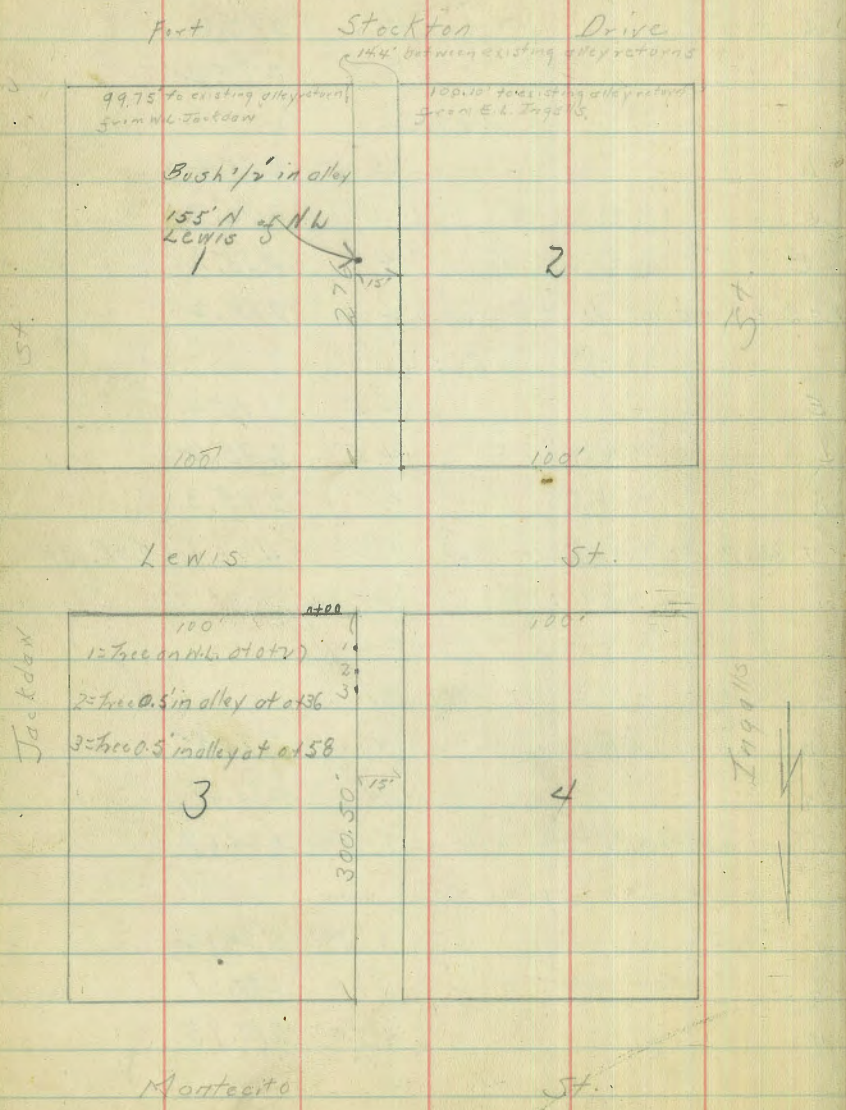 Fort Stockton Drive
14.4' between existing alley returns
99.75' to existing alley return
from W.L. Jackdaw
100.10' to existing alley return
from E.L. Ingalls
Bush 1/2' in alley
155' N of NL
Lewis
1
2
276
15'
St.
St.
100'
100'
Lewis St.
0+00
100'
100'
1=Tree on W.L. at 0+
2=Tree 0.5' in alley at 0+36
3=Tree 0.5' in alley at 0+58
1
2
3
Jackdaw
Ingalls
15'
3
4
300.50'
Montecito St.